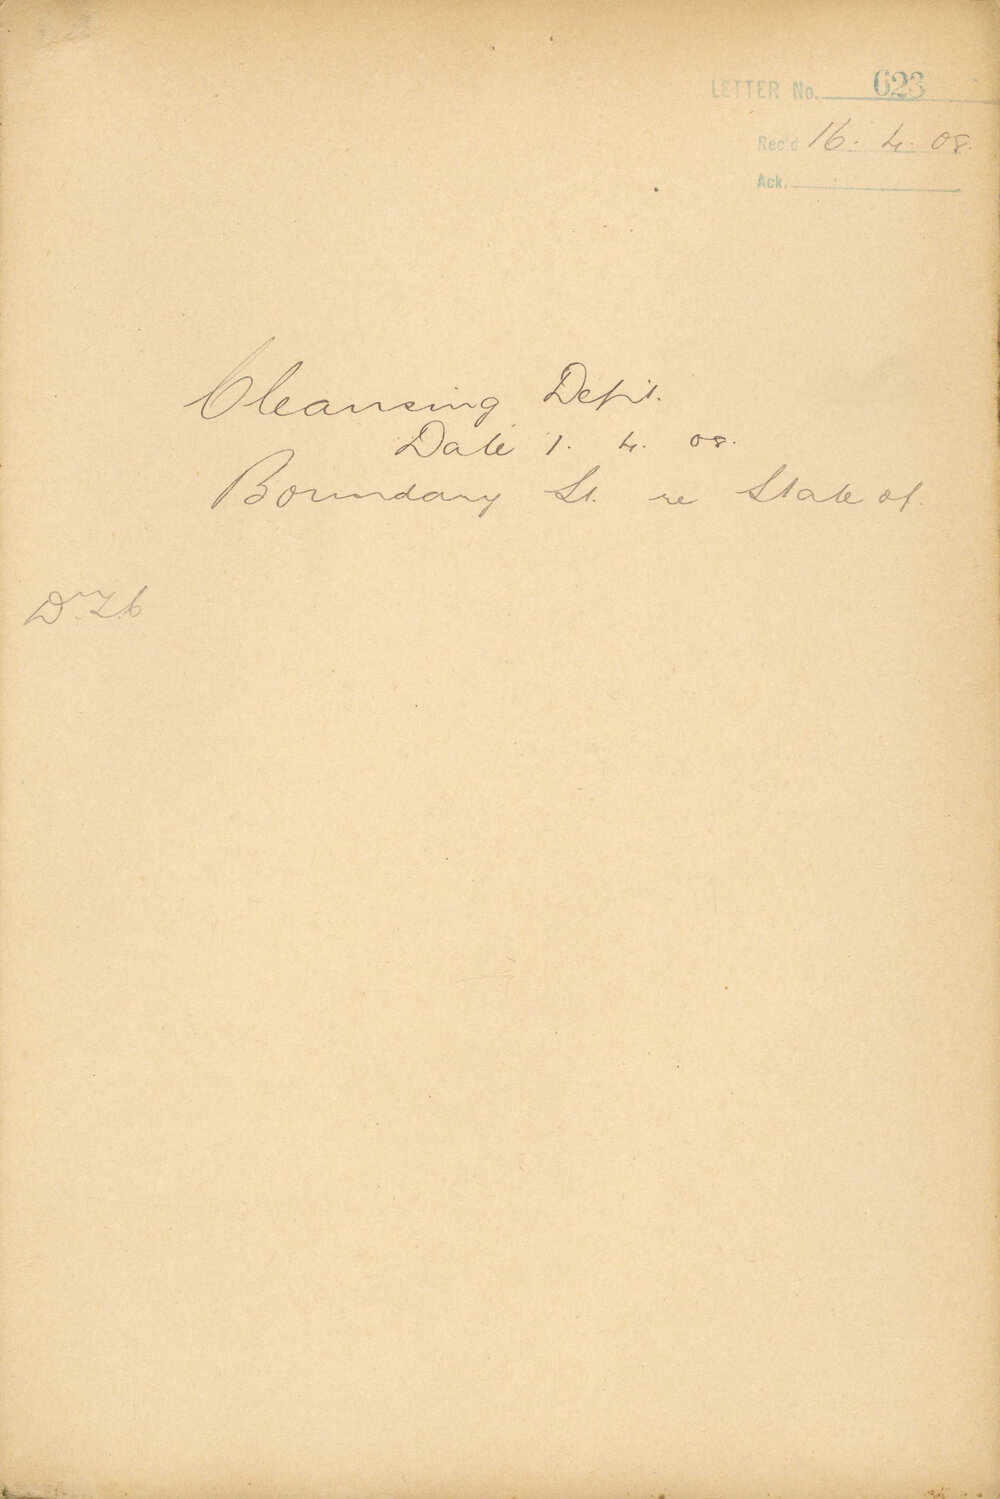 LETTER No. 623
Rec'd 16. 4. 08.
Ack.
Cleansing Dept.
Date 1. 4. 08.
Boundary St. re State of.